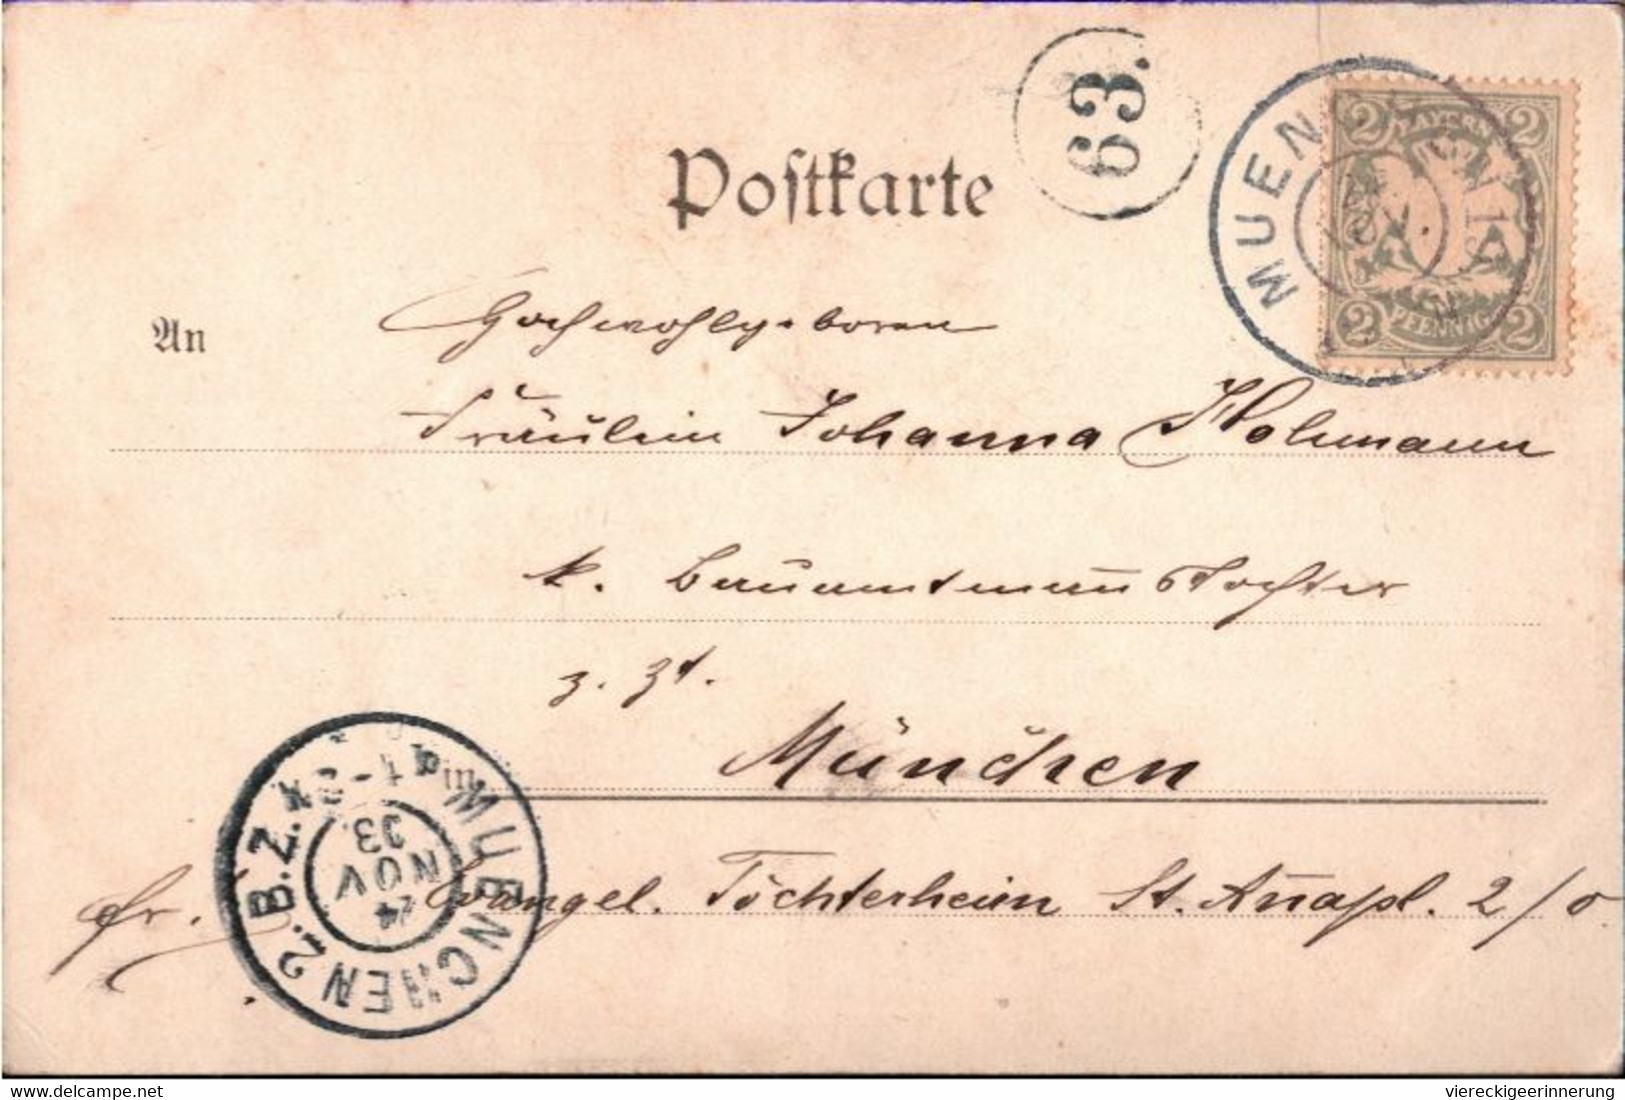 Postkarte
63.
MUENCHEN 1
2 BAYERN 2
2 PFENNIG 2
An
Hochwohlgeboren
Fräulein Johanna Hohmann
k. Bauamtmanns Tochter
z. Zt.
in München
fr. Evangel. Töchterheim St. Annapl. 2/0
MUENCHEN 2. B.Z.
24
NOV
03
delcampe.net
viereckigeerinnerung